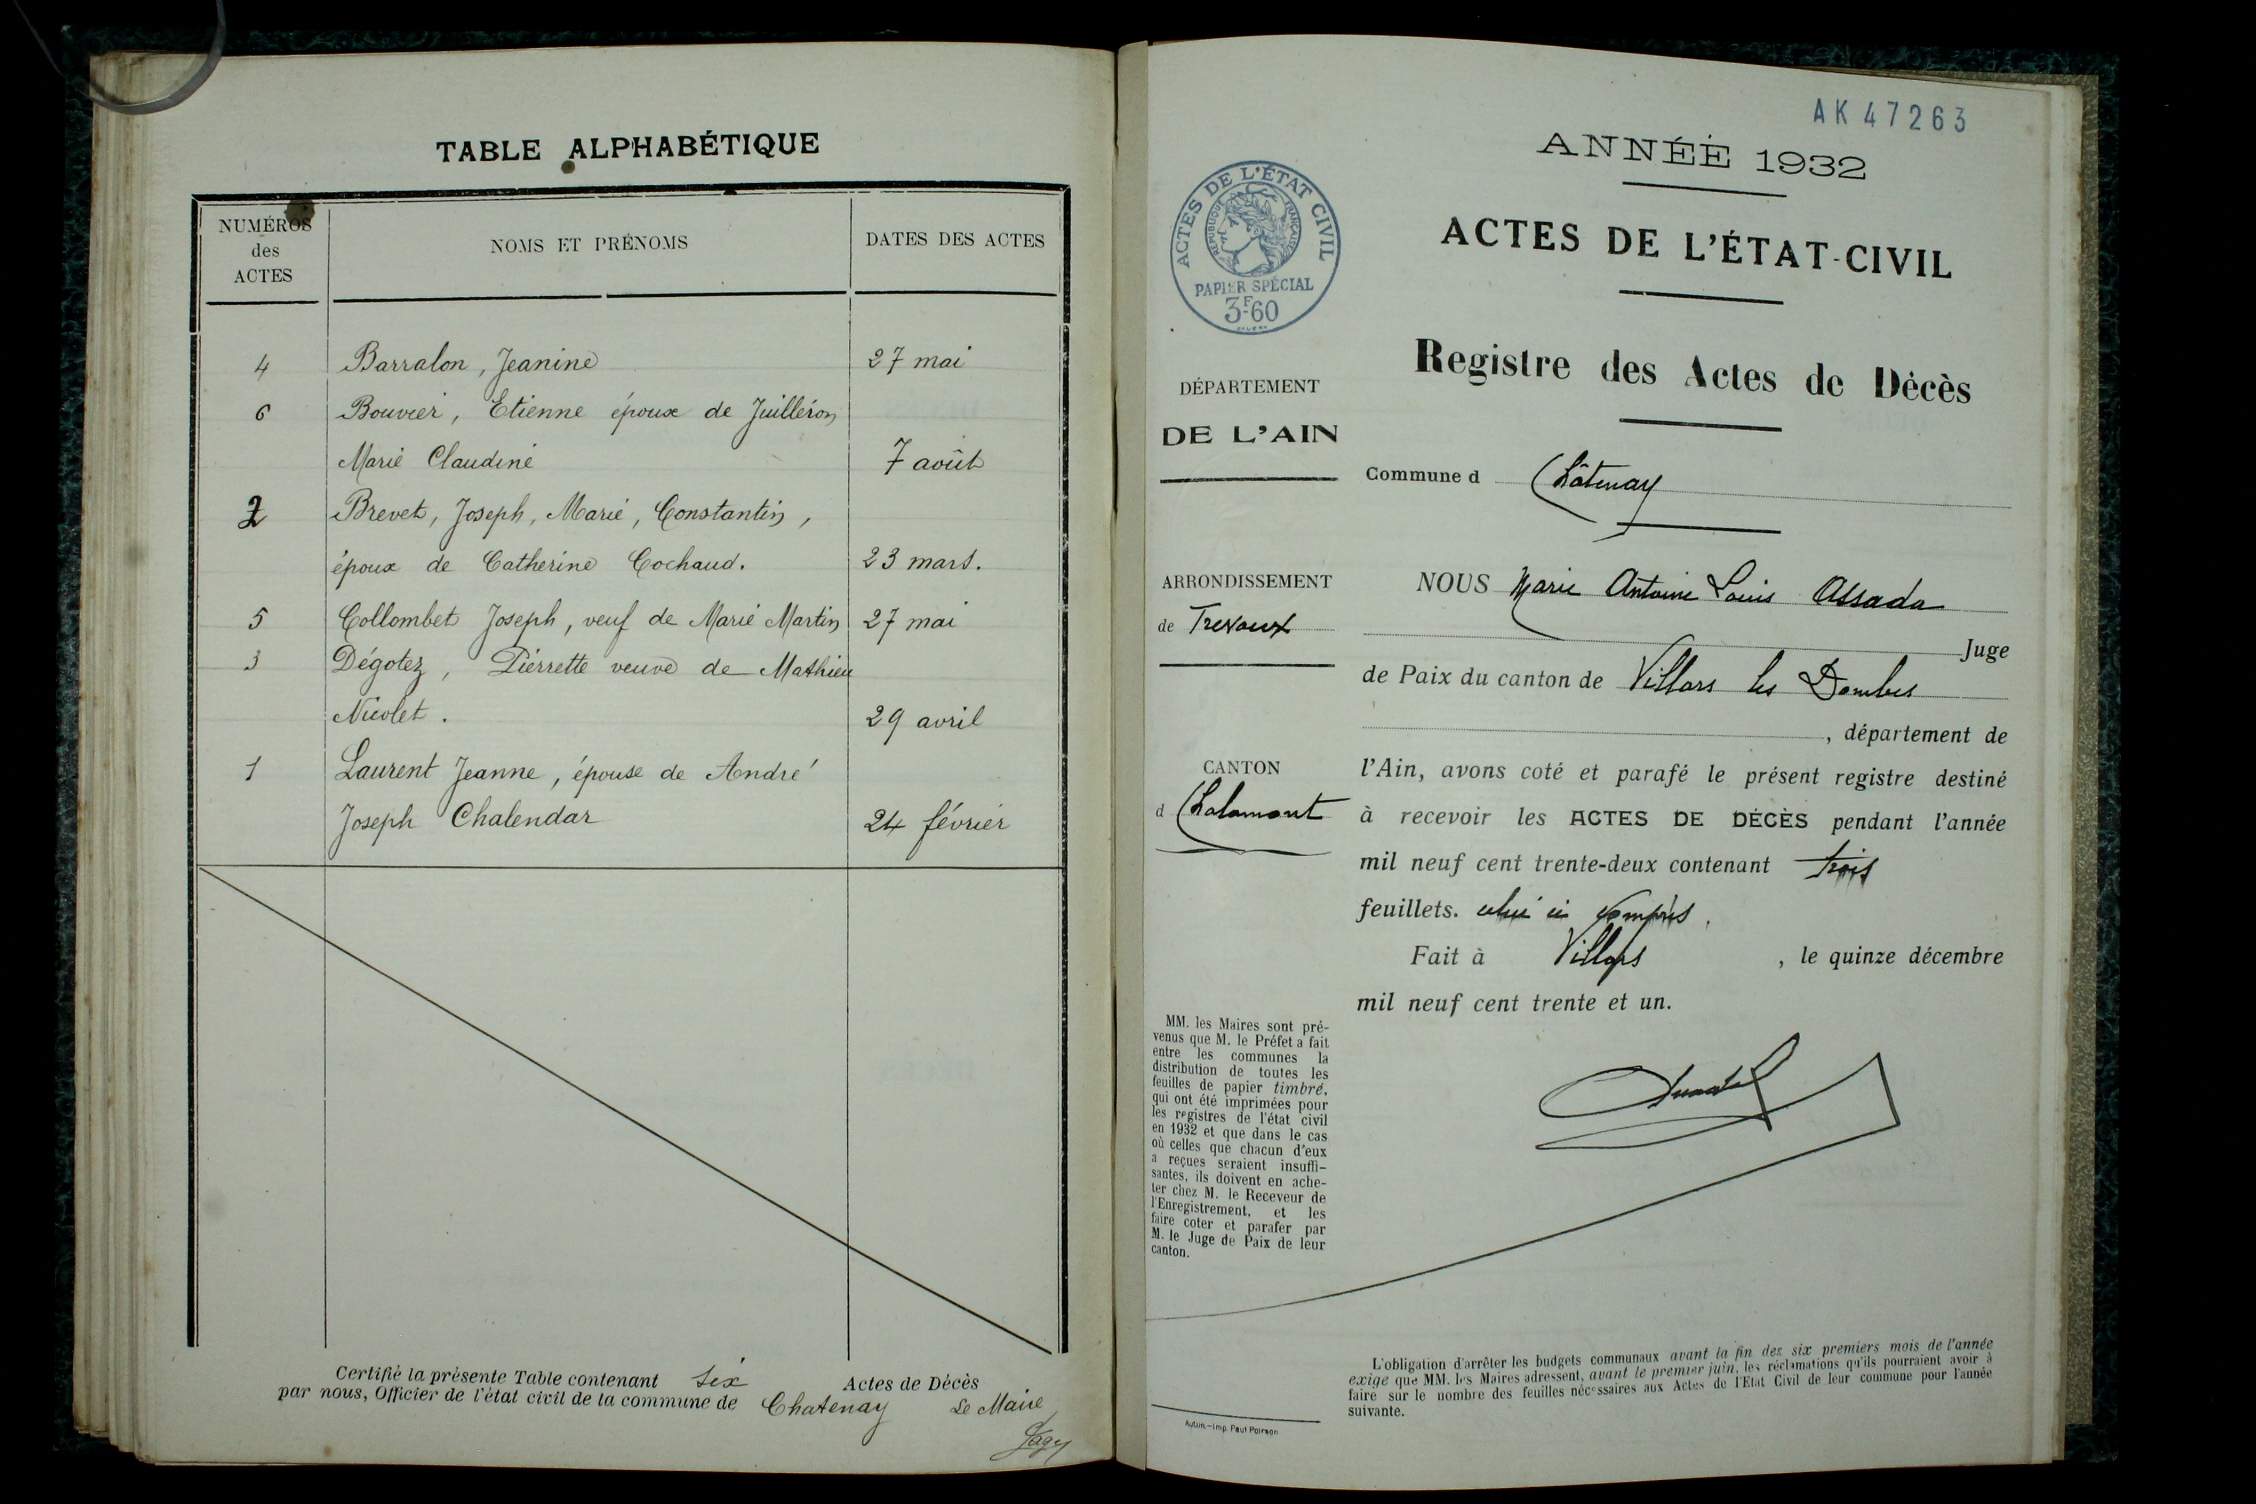 TABLE ALPHABÉTIQUE
NUMÉROS
des
ACTES
NOMS ET PRÉNOMS
DATES DES ACTES
4 Barralon, Jeanine 27 mai
6 Bouvier, Etienne époux de Juilléron
Marie Claudine 7 août
2 Brevet, Joseph, Marie, Constantin,
époux de Catherine Cochaud. 23 mars.
5 Collombet Joseph, veuf de Marie Martin 27 mai
3 Dégotez, Pierrette veuve de Mathieu
Nicolet. 29 avril
1 Laurent Jeanne, épouse de André
Joseph Chalendar 24 février
Certifié la présente Table contenant six Actes de Décès
par nous, Officier de l'état civil de la commune de Chatenay Le Maire
AK 47263
ANNÉE 1932
ACTES DE L'ÉTAT CIVIL
RÉPUBLIQUE FRANÇAISE
PAPIER SPÉCIAL
3F60
ACTES DE L'ÉTAT-CIVIL
Registre des Actes de Décès
DÉPARTEMENT
DE L'AIN
Commune d Châtenay
ARRONDISSEMENT
de Trevoux
CANTON
d Chalamont
NOUS Marie Antoine Louis Assada
Juge
de Paix du canton de Villars les Dombes
, département de
l'Ain, avons coté et parafé le présent registre destiné
à recevoir les ACTES DE DÉCÈS pendant l'année
mil neuf cent trente-deux contenant trois
feuillets. celui ci compris.
Fait à Villars , le quinze décembre
mil neuf cent trente et un.
MM. les Maires sont pré-
venus que M. le Préfet a fait
entre les communes la
distribution de toutes les
feuilles de papier timbré,
qui ont été imprimées pour
les registres de l'état civil
en 1932 et que dans le cas
où celles que chacun d'eux
a reçues seraient insuffi-
santes, ils doivent en ache-
ter chez M. le Receveur de
l'Enregistrement, et les
faire coter et parafer par
M. le Juge de Paix de leur
canton.
L'obligation d'arrêter les budgets communaux avant la fin des six premiers mois de l'année
exige que MM. les Maires adressent, avant le premier juin, les réclamations qu'ils pourraient avoir à
faire sur le nombre des feuilles nécessaires aux Actes de l'Etat Civil de leur commune pour l'année
suivante.
Autun.—Imp. Paul Poirson